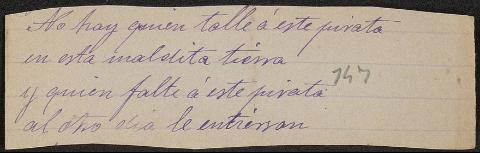 No hay quien talle á este pirata
en esta maldita tierra
y quien falte á este pirata
al otro dia le entierran
147